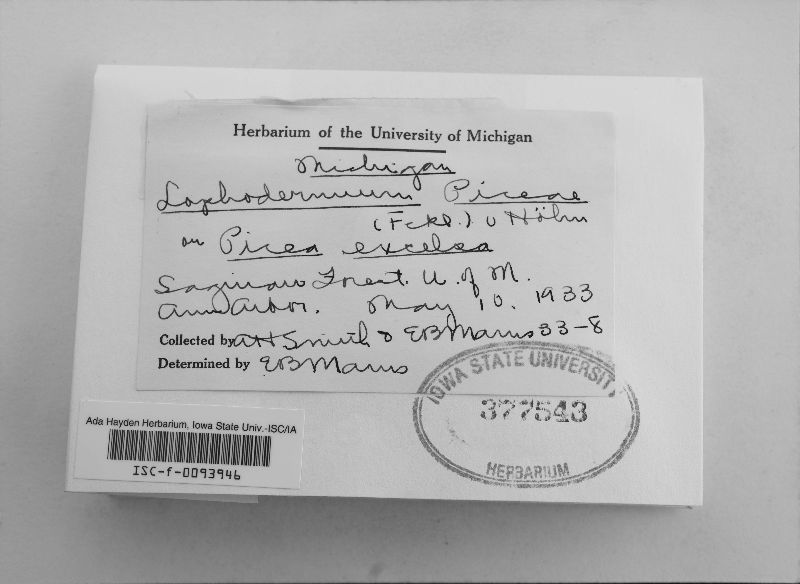 Herbarium of the University of Michigan
Michigan
Lophodermium Piceae
(Fckl.) v Höhn
on Picea excelsa
Saginaw Forest. U. of M.
Ann Arbor. May 10. 1933
Collected by AH Smith & EB Mains 33-8
Determined by EB Mains
IOWA STATE UNIVERSITY
377543
HERBARIUM
Ada Hayden Herbarium, Iowa State Univ.-ISC/IA
ISC-f-0093946